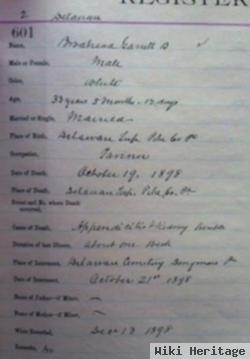 REGISTER
2 Delaware
601
Name, Brodhead Garrett B
Male or Female, Male
Color, White
Age, 33 years 5 months - 12 days
Married or Single, Married
Place of Birth, Delaware Twp. Pike Co. Pa
Occupation, Farmer
Date of Death, October 19, 1898
Place of Death, Delaware Twp. Pike Co. Pa
Street and No. where Death occurred,
Cause of Death, Appendicitis & Kidney trouble
Duration of last Illness, about one Week
Place of Interment, Delaware Cemetery Dingmans Pa
Date of Interment, October 21st 1898
Name of Father—if Minor, —
Name of Mother—if Minor, —
When Recorded, Dec 13 1898
Remarks,
Wiki Heritage